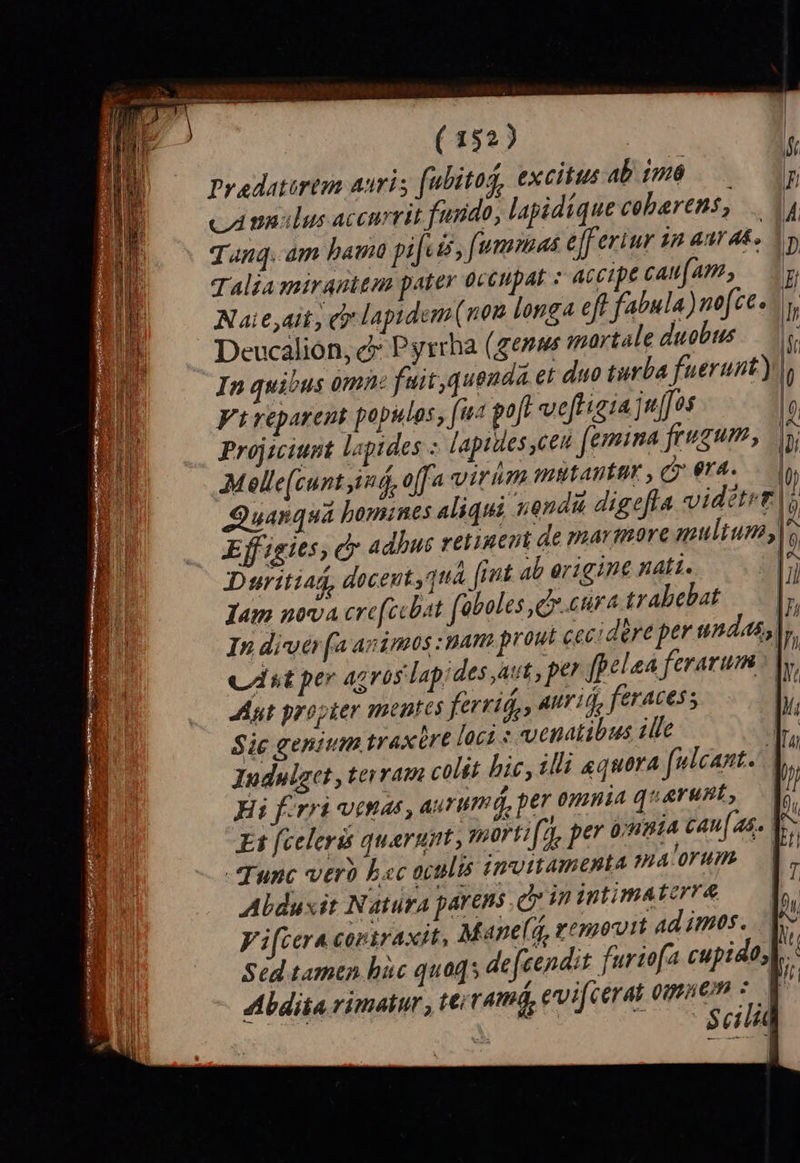 ( 152 )
Prædatorem auris subitoq́; excitus ab imô
Annulus accurrit fundo, lapidíque cohærens,
Tanq; am hamo piscis, summas effertur in auras.
Talia mirantem pater occupat : accipe causam,
Nate, ait, & lapidem (non longa est fabula) nosce.
Deucalion, & Pyrrha (genus mortale duobus
In quibus omne fuit, quondā et duo turba fuerunt)
Vt reparent populos, sua post vestigia jussos
Projiciunt lapides : lapides, ceu semina frugum,
Mollescunt, inq́; ossa virûm mutantur , & ora.
Quanquā homines aliqui nondū digesta vidētur
Effigies, & adhuc retinent de marmore multum,
Duritiaq́; docent, quâ sint ab origine nati.
Iam nova crescebat soboles, & cura trahebat
In diversa animos : nam prout cecidêre per undas,
Aut per agros lapides, aut, per spelæa ferarum
Aut propter montes ferriq́;, auriq́; feraces;
Sic genium traxêre loci : venatibus ille
Indulget, terram colit hic, illi æquora sulcant.
Hi ferri venas, aurumq́; per omnia quærunt,
Et sceleris quærunt, mortisq́; per omnia causas.
Tunc verò hæc oculis invitamenta malorum
Abduxit Natura parens & in intima terræ
Viscera contraxit, Manesq́; removit ad imos.
Sed tamen hùc quoq; descendit furiosa cupido,
Abdita rimatur, terramq́; eviscerat omnem :
Scilic